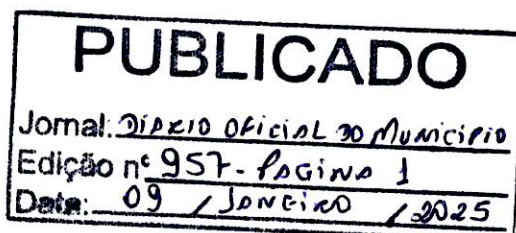 PUBLICADO
Jornal: DIÁRIO OFICIAL DO MUNICIPIO
Edição nº 957 - PAGINA 1
Data: 09 / JANEIRO / 2025